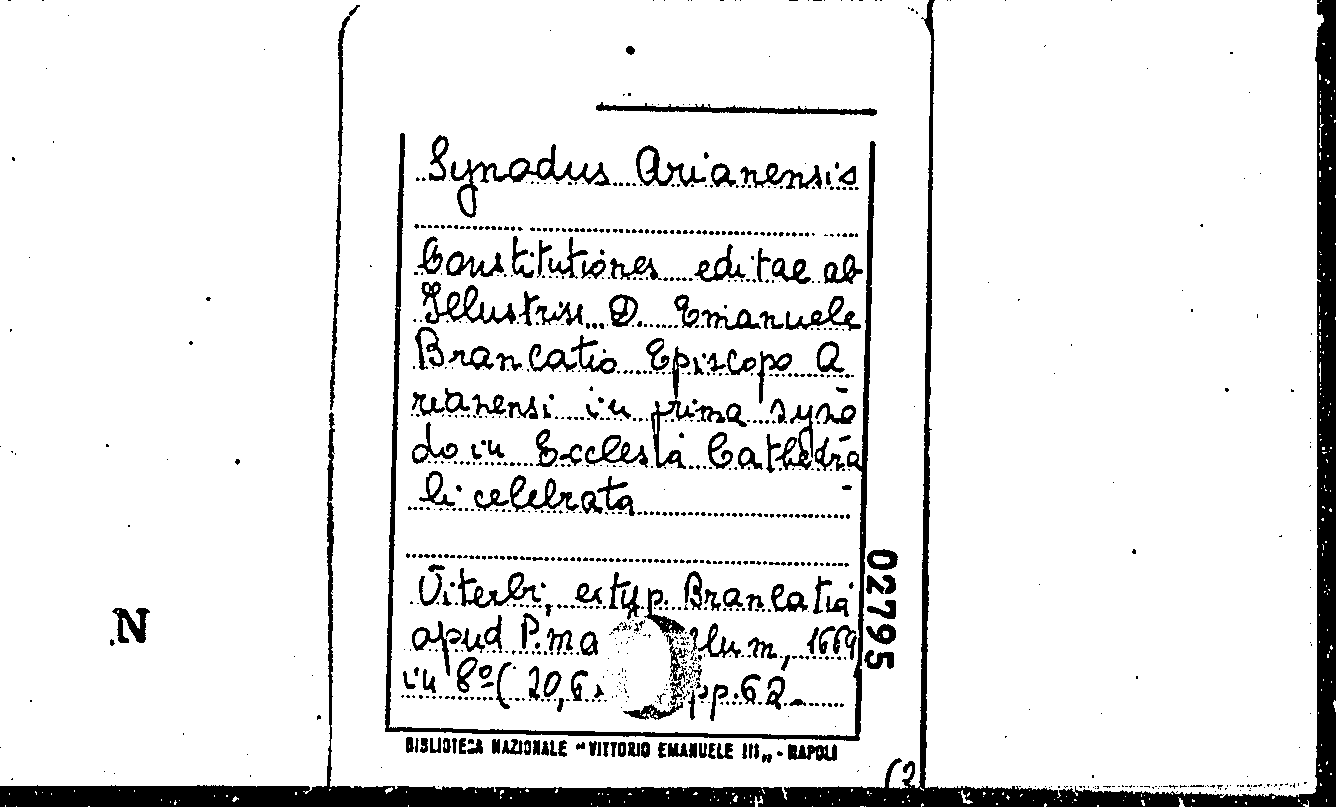 Synodus Arianensis
Constitutiones editae ab
Illustriss. D. Emanuele
Brancatio Episcopo A
rianensi in prima syno
do in Ecclesia Cathedra
li celebrata
Viterbi, ex typ. Brancatia
apud P. ma lum, 1669
in 8º( 20,6x pp. 62.
BIBLIOTECA NAZIONALE "VITTORIO EMANUELE III„ - NAPOLI
02795
N
(2